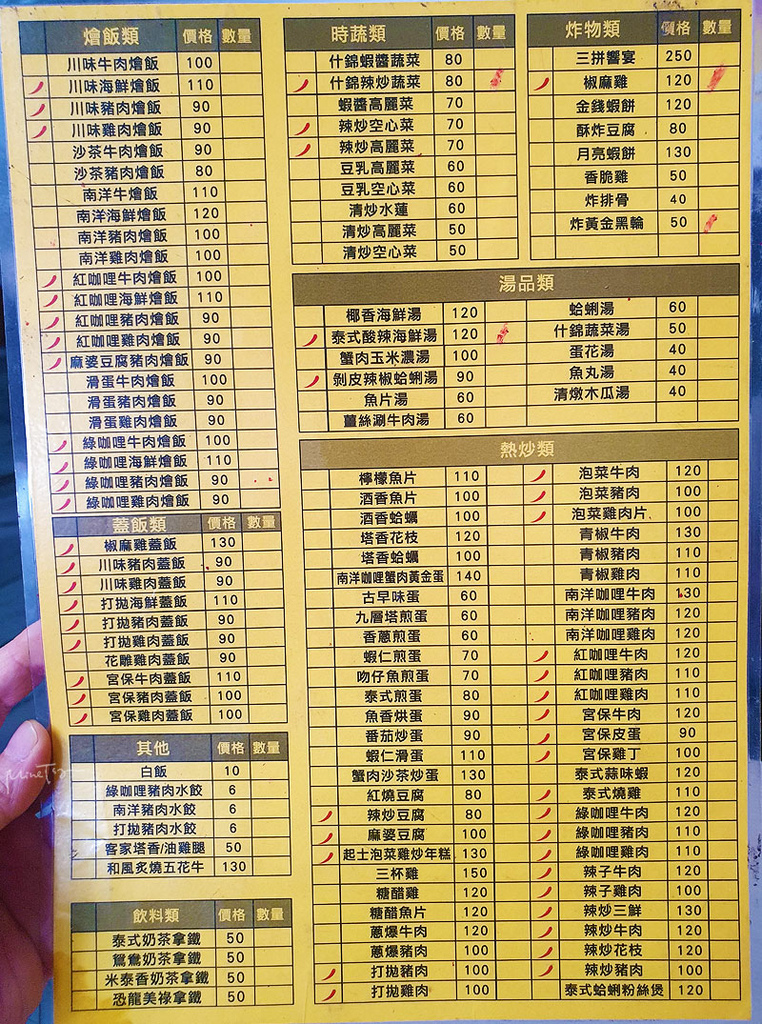 燴飯類 價格 數量
川味牛肉燴飯 100
川味海鮮燴飯 110
川味豬肉燴飯 90
川味雞肉燴飯 90
沙茶牛肉燴飯 90
沙茶豬肉燴飯 80
南洋牛燴飯 110
南洋海鮮燴飯 120
南洋豬肉燴飯 100
南洋雞肉燴飯 100
紅咖哩牛肉燴飯 100
紅咖哩海鮮燴飯 110
紅咖哩豬肉燴飯 90
紅咖哩雞肉燴飯 90
麻婆豆腐豬肉燴飯 90
滑蛋牛肉燴飯 100
滑蛋豬肉燴飯 90
滑蛋雞肉燴飯 90
綠咖哩牛肉燴飯 100
綠咖哩海鮮燴飯 110
綠咖哩豬肉燴飯 90
綠咖哩雞肉燴飯 90
蓋飯類 價格 數量
椒麻雞蓋飯 130
川味豬肉蓋飯 90
川味雞肉蓋飯 90
打拋海鮮蓋飯 110
打拋豬肉蓋飯 90
打拋雞肉蓋飯 90
花雕雞肉蓋飯 90
宮保牛肉蓋飯 110
宮保豬肉蓋飯 100
宮保雞肉蓋飯 100
其他 價格 數量
白飯 10
綠咖哩豬肉水餃 6
南洋豬肉水餃 6
打拋豬肉水餃 6
客家塔香/油雞腿 50
和風炙燒五花牛 130
飲料類 價格 數量
泰式奶茶拿鐵 50
鴛鴦奶茶拿鐵 50
米泰香奶茶拿鐵 50
恐龍美祿拿鐵 50
時蔬類 價格 數量
什錦蝦醬蔬菜 80
什錦辣炒蔬菜 80
蝦醬高麗菜 70
辣炒空心菜 70
辣炒高麗菜 70
豆乳高麗菜 60
豆乳空心菜 60
清炒水蓮 60
清炒高麗菜 50
清炒空心菜 50
炸物類 價格 數量
三拼饗宴 250
椒麻雞 120
金錢蝦餅 120
酥炸豆腐 80
月亮蝦餅 130
香脆雞 50
炸排骨 40
炸黃金黑輪 50
湯品類
椰香海鮮湯 120
泰式酸辣海鮮湯 120
蟹肉玉米濃湯 100
剝皮辣椒蛤蜊湯 90
魚片湯 60
薑絲涮牛肉湯 60
蛤蜊湯 60
什錦蔬菜湯 50
蛋花湯 40
魚丸湯 40
清燉木瓜湯 40
熱炒類
檸檬魚片 110
酒香魚片 100
酒香蛤蠣 100
塔香花枝 120
塔香蛤蠣 100
南洋咖哩蟹肉黃金蛋 140
古早味蛋 60
九層塔煎蛋 60
香蔥煎蛋 60
蝦仁煎蛋 70
吻仔魚煎蛋 70
泰式煎蛋 80
魚香烘蛋 90
番茄炒蛋 90
蝦仁滑蛋 110
蟹肉沙茶炒蛋 130
紅燒豆腐 80
辣炒豆腐 80
麻婆豆腐 100
起士泡菜雞炒年糕 130
三杯雞 150
糖醋雞 120
糖醋魚片 120
蔥爆牛肉 120
蔥爆豬肉 100
打拋豬肉 100
打拋雞肉 100
泡菜牛肉 120
泡菜豬肉 100
泡菜雞肉片 100
青椒牛肉 130
青椒豬肉 110
青椒雞肉 110
南洋咖哩牛肉 130
南洋咖哩豬肉 120
南洋咖哩雞肉 120
紅咖哩牛肉 120
紅咖哩豬肉 110
紅咖哩雞肉 110
宮保牛肉 120
宮保皮蛋 90
宮保雞丁 100
泰式蒜味蝦 120
泰式燒雞 110
綠咖哩牛肉 120
綠咖哩豬肉 110
綠咖哩雞肉 110
辣子牛肉 120
辣子雞肉 100
辣炒三鮮 130
辣炒牛肉 120
辣炒花枝 120
辣炒豬肉 100
泰式蛤蜊粉絲煲 120